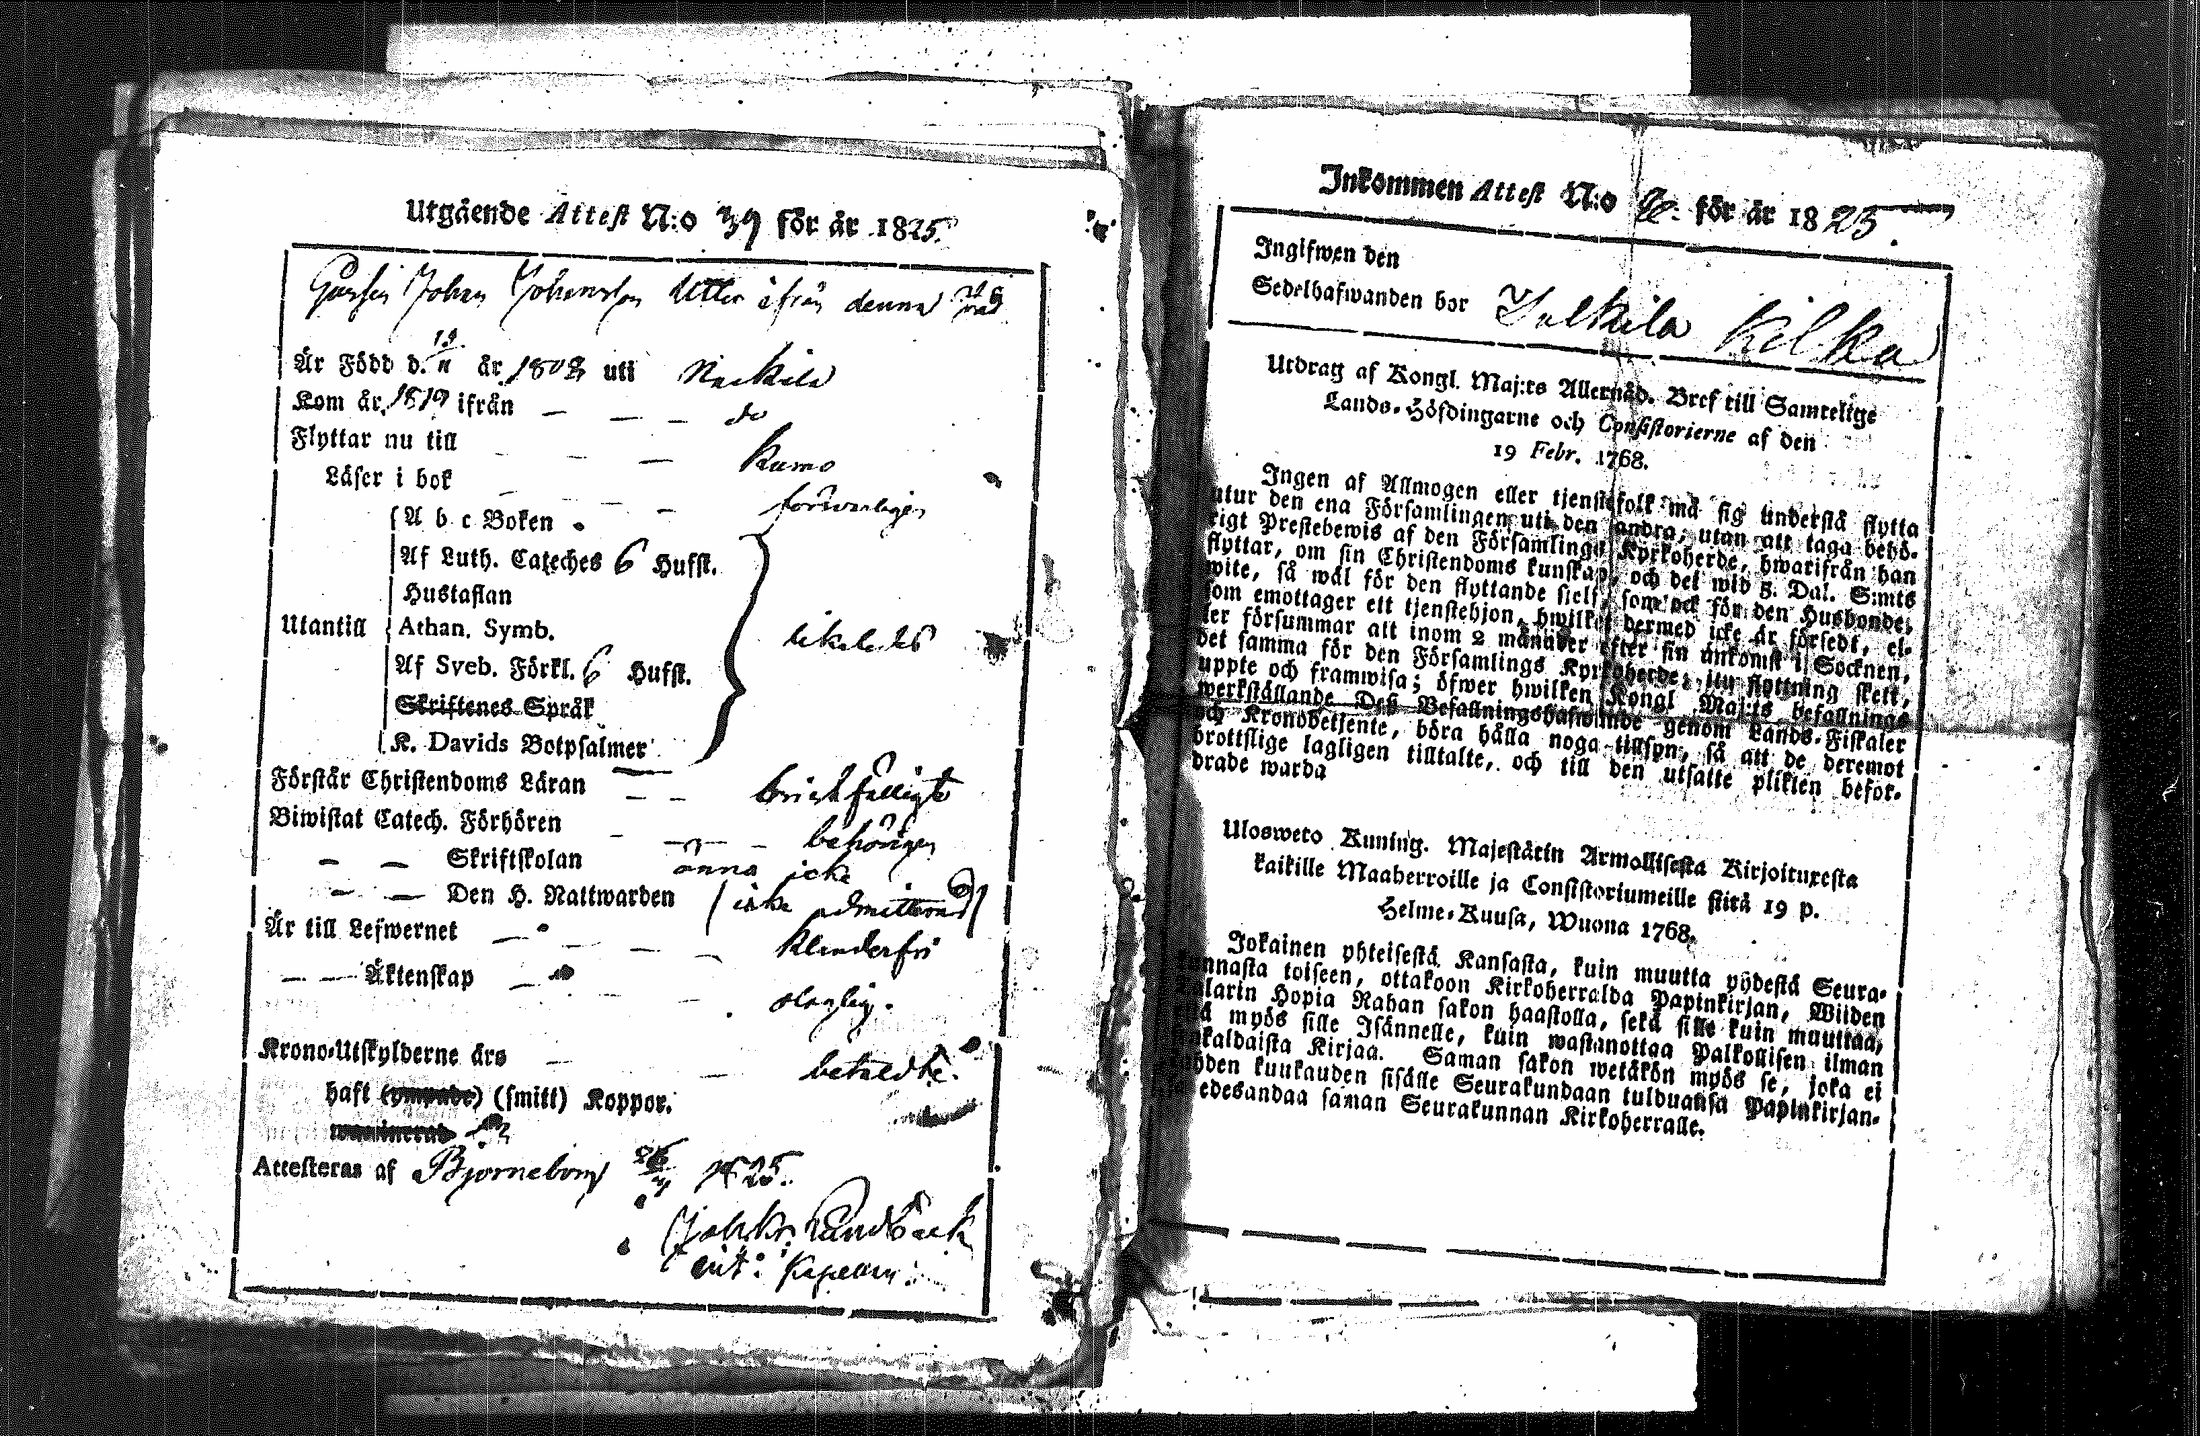 Utgående Attest N:o 39 för år 1825.
Johan Johansson Utter ifrån denna
Är Född d. år 1808 uti Nackila
Kom år 1819 ifrån — — — do
Flyttar nu till — — — Kumo
Läser i bok — — — försvarligen
A b c Boken
Af Luth. Cateches 6 Hufst.
Hustaflan
Utantill Athan. Symb. likaledes
Af Sveb. Förkl. 6 Hufst.
Skriftenes Språk
K. Davids Botpsalmer
Förstår Christendoms Läran — — bristfälligt
Biwistat Catech. Förhören — — — behörigen
— — Skriftskolan ännu icke
— — Den H. Nattwarden (icke admitterad)
Är till Lefwernet — — — — klanderfri
— — Äktenskap — — olaglig.
Krono-Utskylderne äro — — betaldte.
haft (ympade) (smitt) Koppor.
waccinerad
Attesteras af Björneborg 1825.
Sandbäck
Kapellan.
Inkommen Attest N:o för år 1825.
Ingifwen den
Sedelhafwanden bor Kilka
Utdrag af Kongl. Maj:ts Allernåd. Bref till Samtelige
Lands-Höfdingarne och Consistorierne af den
19 Febr. 1768.
Ingen af Allmogen eller tjenstefolk må sig understå flytta
utur den ena Församlingen uti den andra, utan att taga behö-
rigt Prestebewis af den Församlings Kyrkoherde, hwarifrån han
flyttar, om sin Christendoms kunskap, och det wid 5. Dal. S:mts
wite, så wäl för den flyttande sielf, som ock för den Husbonde,
som emottager ett tjenstehjon, hwilket dermed icke är försedt, el-
ler försummar att inom 2 månader efter sin ankomst i Socknen,
det samma för den Församlings Kyrkoherde, flyttning skett,
uppte och framwisa; öfwer hwilken Kongl Maj:ts befallnings
werkställande Deß Befallningshafwande genom Lands-Fiskaler
och Kronobetjente, böra hålla noga tillsyn, så att de deremot
brottslige lagligen tilltalte, och till den utsatte plikten befor-
drade warda
Ulosweto Kuning. Majestätin Armollisesta Kirjoituxesta
kaikille Maaherroille ja Consistoriumeille siitä 19 p.
Helme-Kuusa, Wuona 1768.
Jokainen yhteisestä Kansasta, kuin muutta yhdestä Seura-
kunnasta toiseen, ottakoon Kirkoherralda Papinkirjan, Wiiden
Talarin Hopia Rahan sakon haastolla, sekä sille kuin muuttaa,
että myös sille Isännelle, kuin wastanottaa Palkollisen ilman
sinkaldaista Kirjaa. Saman sakon wetäkön myös se, joka ei
kahden kuukauden sisälle Seurakundaan tulduansa Papinkirjan-
sa edesandaa saman Seurakunnan Kirkoherralle.